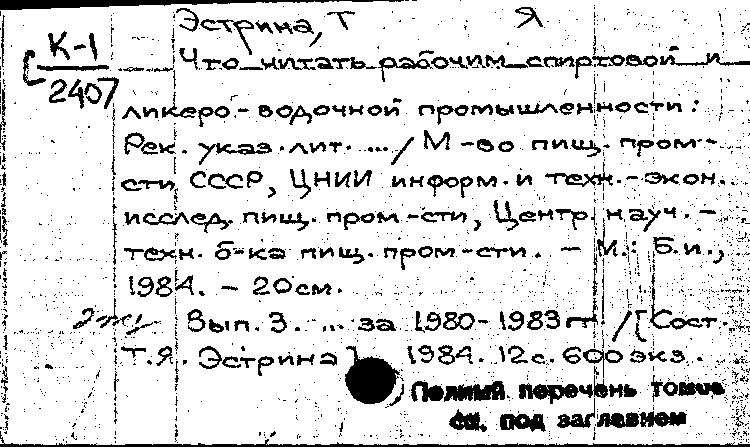 Эстрина, Т Я
К-1
2407
Что читать рабочим спиртовой и
ликеро-водочной промышленности:
Рек. указ. лит. ... / М-во пищ. пром-
сти СССР, ЦНИИ информ. и техн.-экон.
исслед. пищ. пром-сти, Центр. науч.-
техн. б-ка пищ. пром-сти. - М.: Б.и.,
1984. - 20см.
Вып. 3. ... за 1980-1983 гг. / [Сост.
Т.Я. Эстрина] 1984. 12с. 600 экз.
Полный перечень томов
см. под заглавием